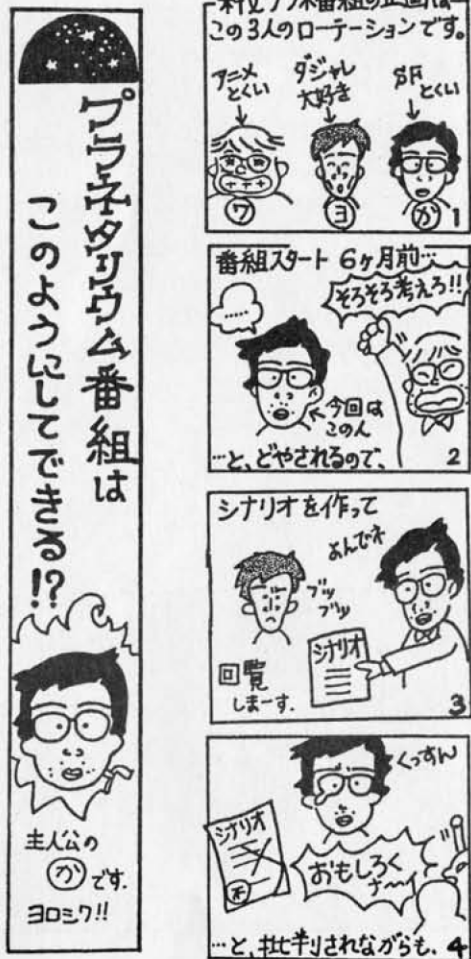 プラネタリウム番組は
このようにしてできる!?
主人公の
か です.
ヨロシク!!
この3人のローテーションです。
アニメ
とくい
ダジャレ
大好き
SF
とくい
ワ
ヨ
か
1
番組スタート 6ヶ月前…
そろそろ考えろ!!
……
今回は
この人
…と、どやされるので、
2
シナリオを作って
よんでネ
ブッ
ブッ
シナリオ
回覧
しまーす.
3
くっすん
シナリオ
おもしろく
ナ〜イ
…と、批判されながらも、
4